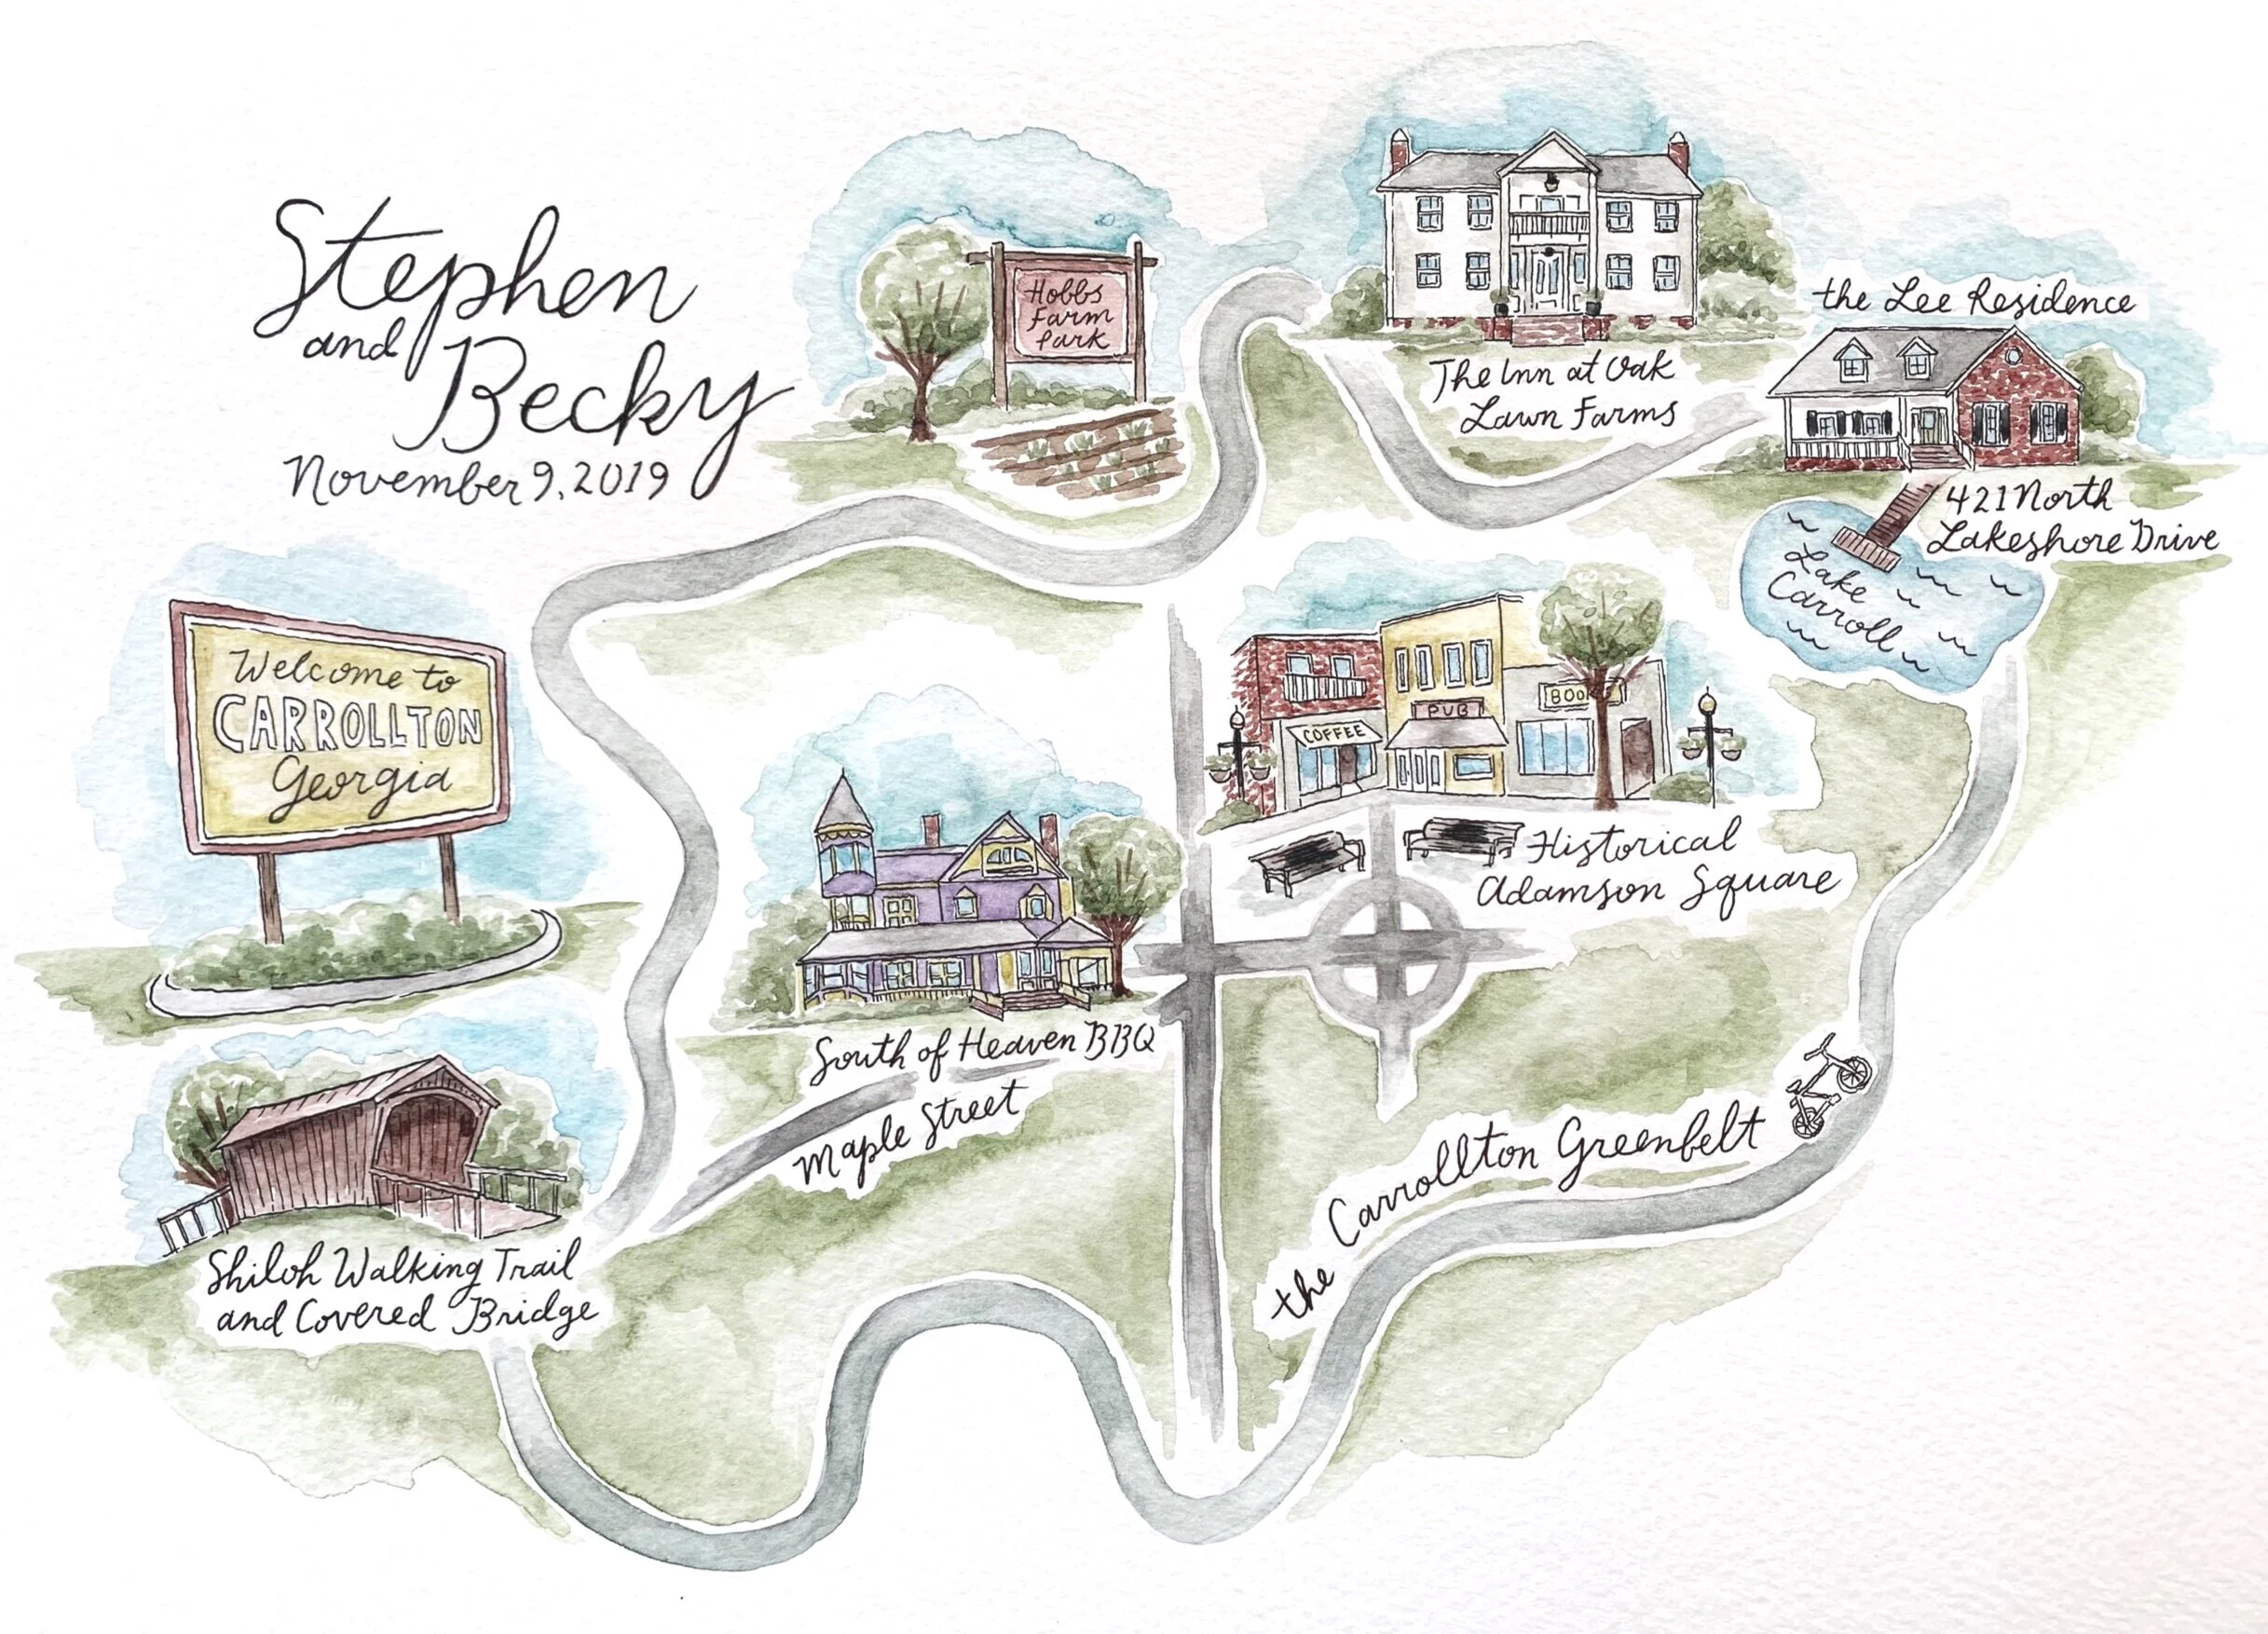 Stephen
and
Becky
November 9, 2019
Hobbs
Farm
Park
The Inn at Oak
Lawn Farms
the Lee Residence
421 North
Lakeshore Drive
Lake
Carroll
Welcome to
CARROLLTON
Georgia
COFFEE
PUB
Historical
Adamson Square
South of Heaven BBQ
Maple Street
Shiloh Walking Trail
and Covered Bridge
the Carrollton Greenbelt